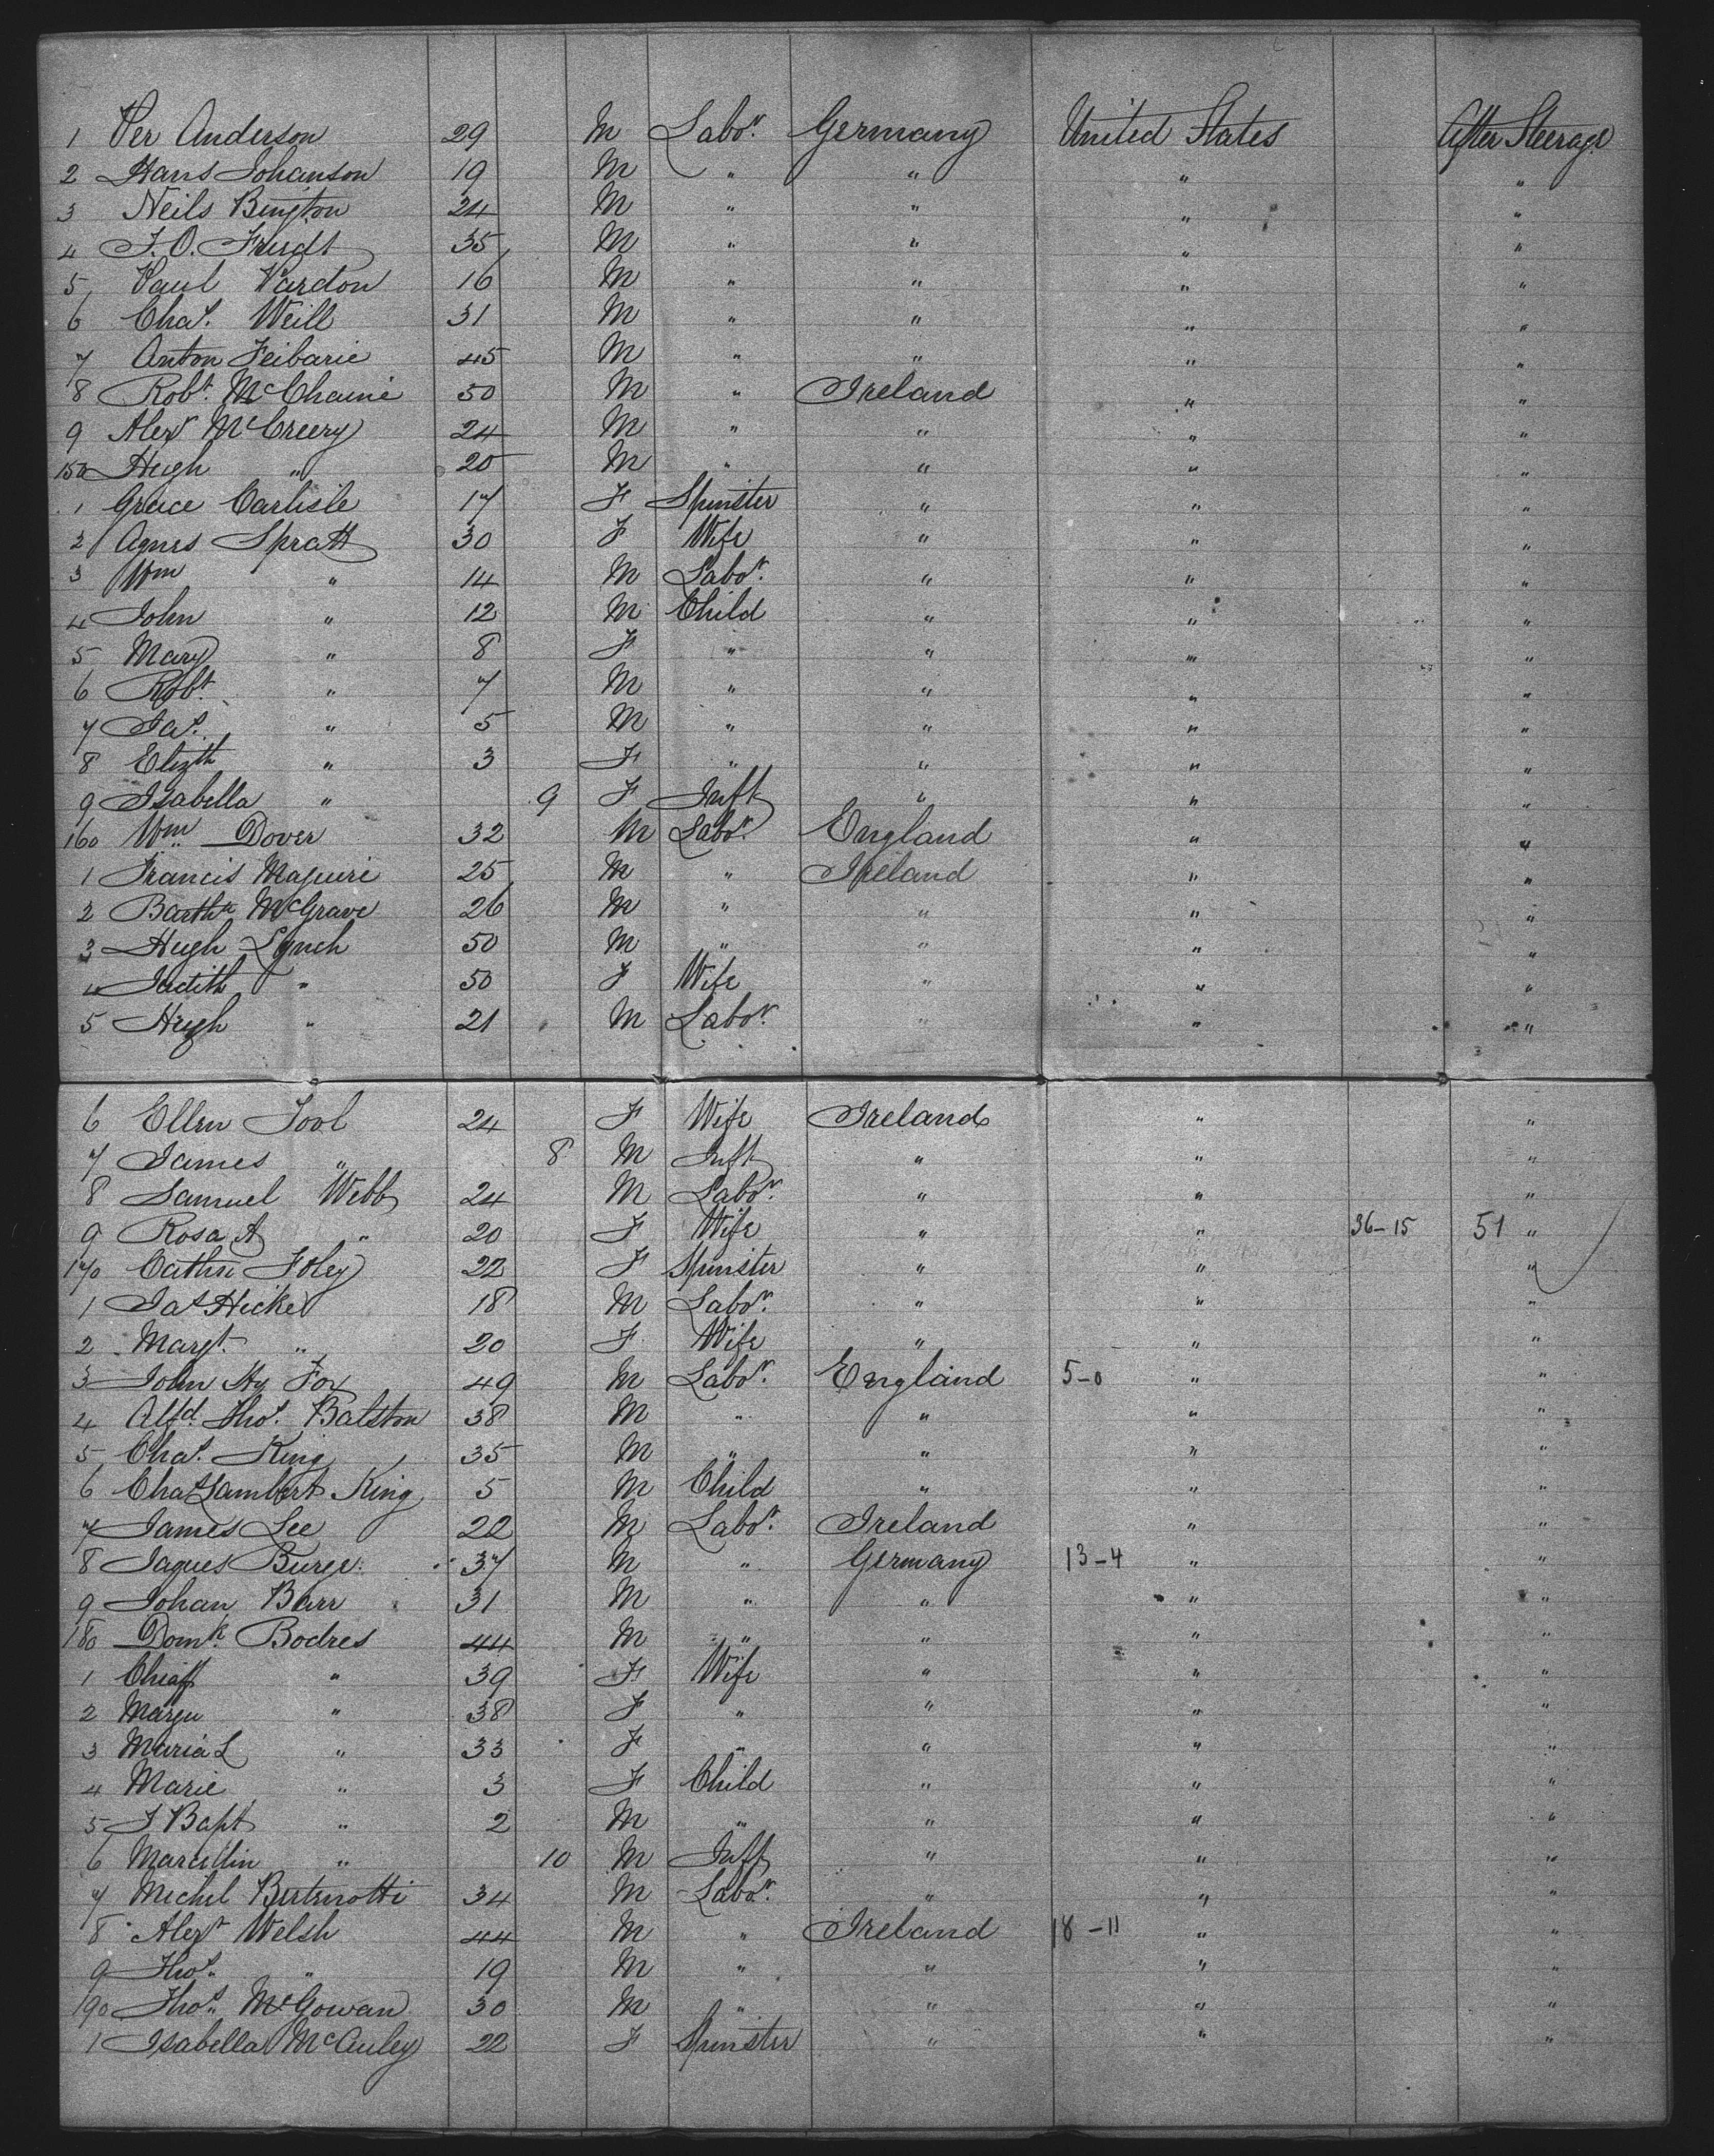 1 Per Anderson 29 M Labor Germany United States After Steerage
2 Hans Johanson 19 M " " " "
3 Neils Bington 24 M " " " "
4 J. O. Frudt 35 M " " " "
5 Paul Vardon 16 M " " " "
6 Chas. Weill 31 M " " " "
7 Anton Feibarie 45 M " " " "
8 Robt. McChainie 50 M " Ireland " "
9 Alexr McCreery 24 M " " " "
150 Hugh " 20 M " " " "
1 Grace Carlisle 17 F Spinster " " "
2 Agnes Spratt 30 F Wife " " "
3 Wm " 14 M Labor. " " "
4 John " 12 M Child " " "
5 Mary " 8 F " " " "
6 Robt. " 7 M " " " "
7 Jas. " 5 M " " " "
8 Elizth " 3 F " " " "
9 Isabella " 9 F Inft " " "
160 Wm. Dover 32 M Labor. England " "
1 Francis Maguire 25 M " Ireland " "
2 Barthw McGrave 26 M " " " "
3 Hugh Lynch 50 M " " " "
4 Judith " 50 F Wife " " "
5 Hugh " 21 M Labor. " " "
6 Ellen Tool 24 F Wife Ireland " "
7 James " 8 M Inft " " "
8 Samuel Webb 24 M Labor. " " "
9 Rosa A " 20 F Wife " " 36-15 51 "
170 Cathn Foley 22 F Spinster " " "
1 Jas Hickey 18 M Labor. " " "
2 Margt. " 20 F Wife " " "
3 John Hy Fox 49 M Labor. England 5-0 " "
4 Alfd. Thos. Balston 38 M " " " "
5 Chas. King 35 M " " " "
6 Chas Lambert King 5 M Child " " "
7 James Lee 22 M Labor. Ireland " "
8 Jaques Burge. 37 M " Germany 13-4 " "
9 Johan Barr 31 M " " " "
180 Domk. Bodres 44 M " " " "
1 " 39 F Wife " " "
2 " 38 F " " " "
3 Maria L " 33 F " " " "
4 Marie " 3 F Child " " "
5 J Bapt " 2 M " " " "
6 Marcellin " 10 M Inft " " "
7 Michel 34 M Labor. " " "
8 Alexr Welsh 44 M " Ireland 18-11 " "
9 Thos. " 19 M " " " "
190 Thos. McGowan 30 M " " " "
1 Isabella McAuley 22 F Spinster " " "